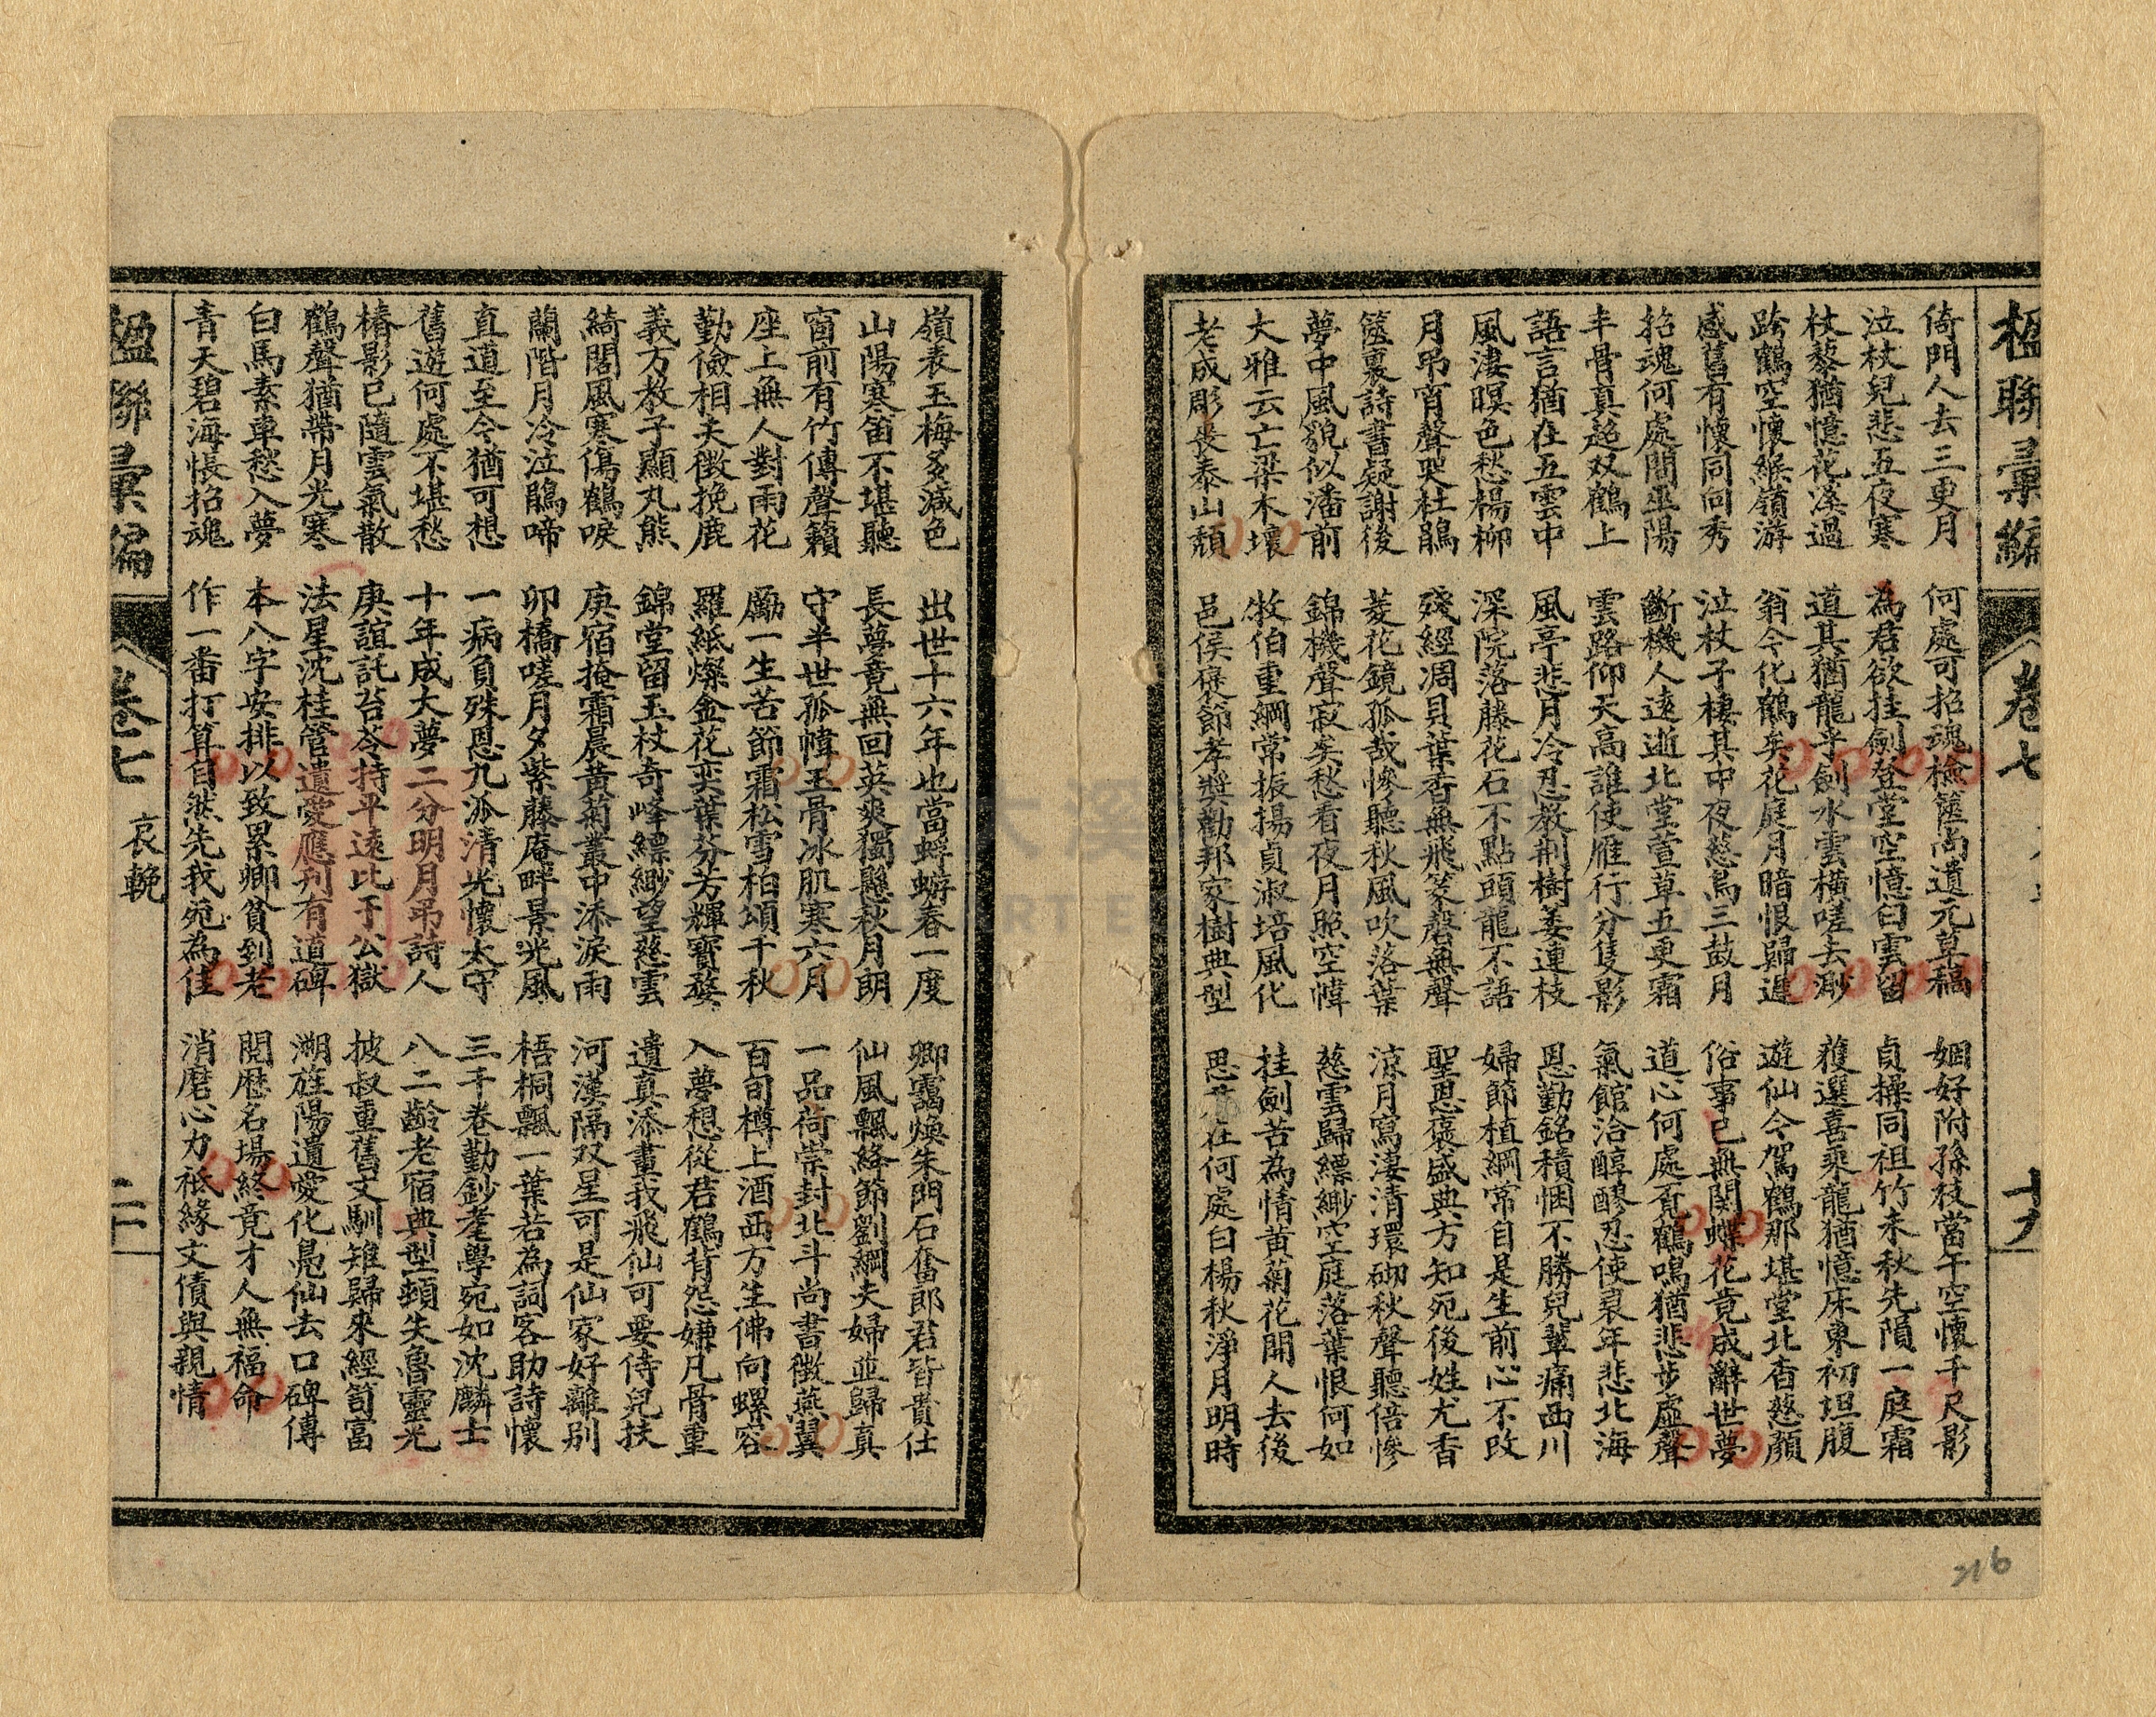 楹聯彙編
卷七
十九
倚門人去三更月
泣杖兒悲五夜寒
杖藜猶憶花溪過
跨鶴空懷緱嶺游
感舊有懷同向秀
招魂何處問巫陽
丰骨真超双鶴上
語言猶在五雲中
風淒暝色愁楊柳
月弔宵聲哭杜鵑
篋裏詩書疑謝後
夢中風貌似潘前
大雅云亡梁木壞
老成彫喪泰山頹
何處可招魂檢篋尚遺元草稿
為君欲挂劍登堂空憶白雲留
道其猶龍乎劍水雲橫嗟去渺
翁今化鶴矣花庭月暗恨歸遲
泣杖子棲其中夜慈烏三鼓月
斷機人遠逝北堂萱草五更霜
雲路仰天高誰使雁行分隻影
風亭悲月冷忍教荊樹萎連枝
深院落藤花石不點頭龍不語
殘經凋貝葉香無飛篆磬無聲
菱花鏡孤哉慘聽秋風吹落葉
錦機聲寂矣愁看夜月照空幃
牧伯重綱常振揚貞淑培風化
邑侯褒節孝獎勸邦家樹典型
姻好附孫枝當午空懷千尺影
貞操同祖竹未秋先隕一庭霜
獲選喜乘龍猶憶床東初坦腹
遊仙今駕鶴那堪堂北杳慈顏
俗事已無関蝶花竟成辭世夢
道心何處覓鶴鳴猶悲步虛聲
氣館洽醇醪忍使衰年悲北海
恩勤銘積悃不勝兒輩痛西川
婦節植綱常自是生前心不改
聖恩褒盛典方知死後姓尤香
涼月寫淒清環砌秋聲聽倍慘
慈雲歸縹緲空庭落葉恨何如
挂劍苦為情黃菊花開人去後
思君在何處白楊秋淨月明時
嶺表玉梅多減色
山陽寒笛不堪聽
窗前有竹傳聲籟
座上無人對雨花
勤儉相夫徵挽鹿
義方教子顯丸熊
綺閣風寒傷鶴唳
蘭階月冷泣鵑啼
直道至今猶可想
舊遊何處不堪愁
椿影已隨雲氣散
鶴聲猶帶月光寒
白馬素車愁入夢
青天碧海悵招魂
出世十六年也當蜉蝣春一度
長夢竟無回英爽獨懸秋月朗
守半世孤幃玉骨冰肌寒六月
勵一生苦節霜松雪柏頌千秋
羅紙燦金花奕葉芬芳輝寶婺
錦堂留玉杖奇峰縹緲望慈雲
庚宿掩霜晨黃菊叢中添淚雨
卯橋嗟月夕紫藤庵畔景光風
一病負殊恩九派清光懷太守
十年成大夢二分明月弔詩人
庚誼託苔岑持平遠比于公獄
法星沈桂管遺愛應刊有道碑
本八字安排以致累卿貧到老
作一番打算自然先我死為佳
卿靄煥朱門石奮郎君皆貴仕
仙風飄絳節劉綱夫婦並歸真
一品荷崇封北斗尚書徵燕翼
百旬樽上酒西方生佛向螺容
入夢想從君鶴背怨嫌凡骨重
遺真添畫我飛仙可要侍兒扶
河漢隔双星可是仙家好離別
梧桐飄一葉若為詞客助詩懷
三千卷勤鈔耄學宛如沈麟士
八二齡老宿典型頓失魯靈光
披叔重舊文馴雉歸來經笥富
溯旌陽遺愛化鳧仙去口碑傳
閱歷名場終竟才人無福命
消磨心力祗緣文債與親情
楹聯彙編
卷七
哀輓
二十
216